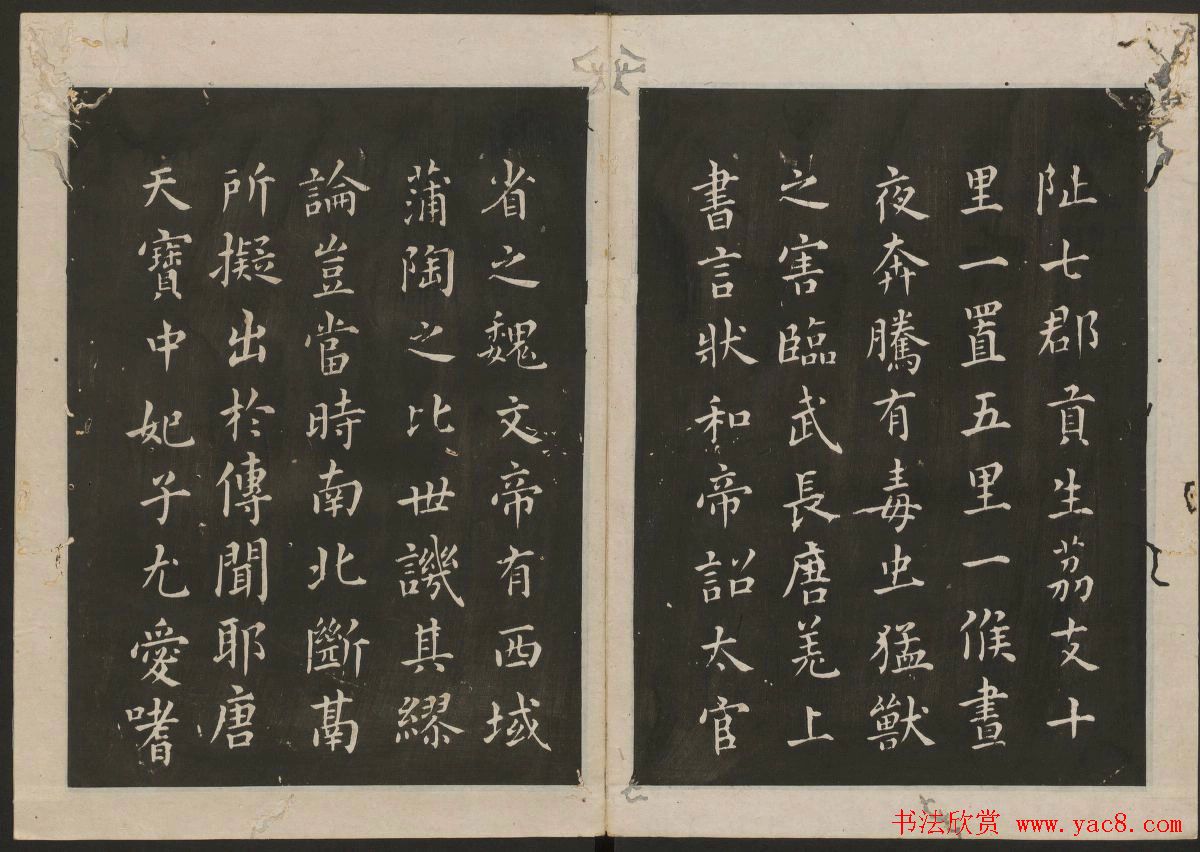 阯七郡貢生茘支十
里一置五里一候晝
夜奔騰有毒虫猛獸
之害臨武長唐羌上
書言狀和帝詔太官
省之魏文帝有西域
蒲陶之比世譏其繆
論豈當時南北斷鬲
所擬出於傳聞耶唐
天寶中妃子尤愛嗜
书法欣赏 www.yac8.com